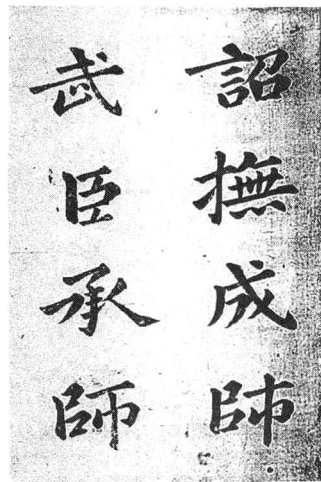 詔撫成師
武臣承師